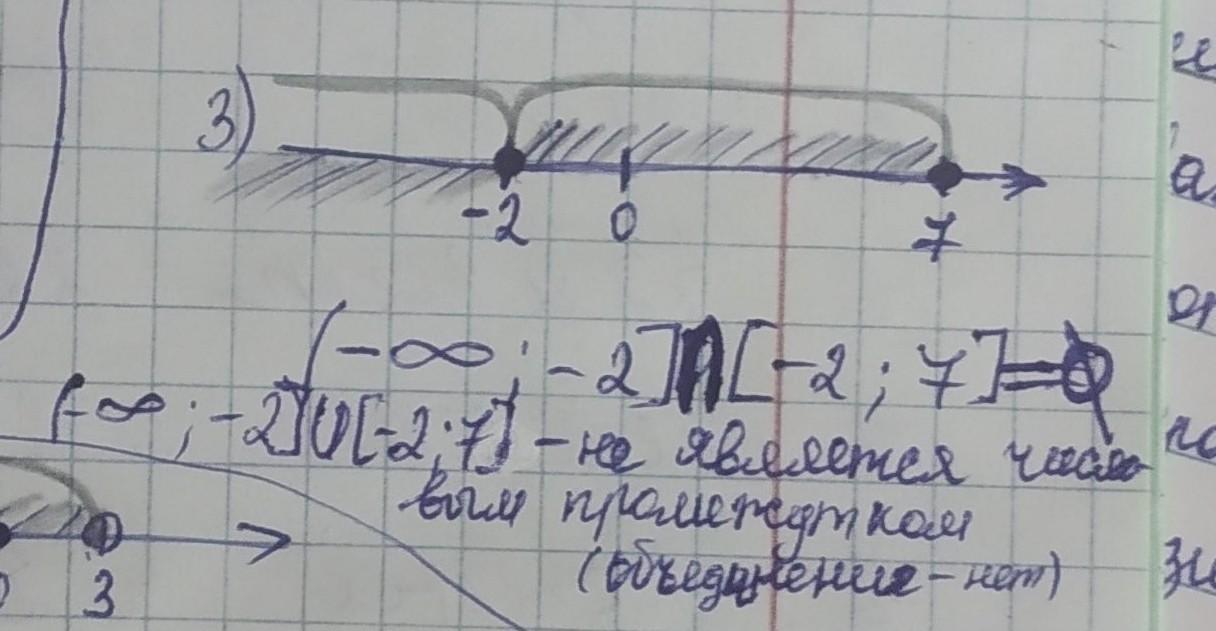 3)
-2 0 7
(-∞; -2]∩[-2; 7]=Ø
(-∞; -2]∪[-2; 7] - не является число
вым промежутком
(объединение - нет)
3